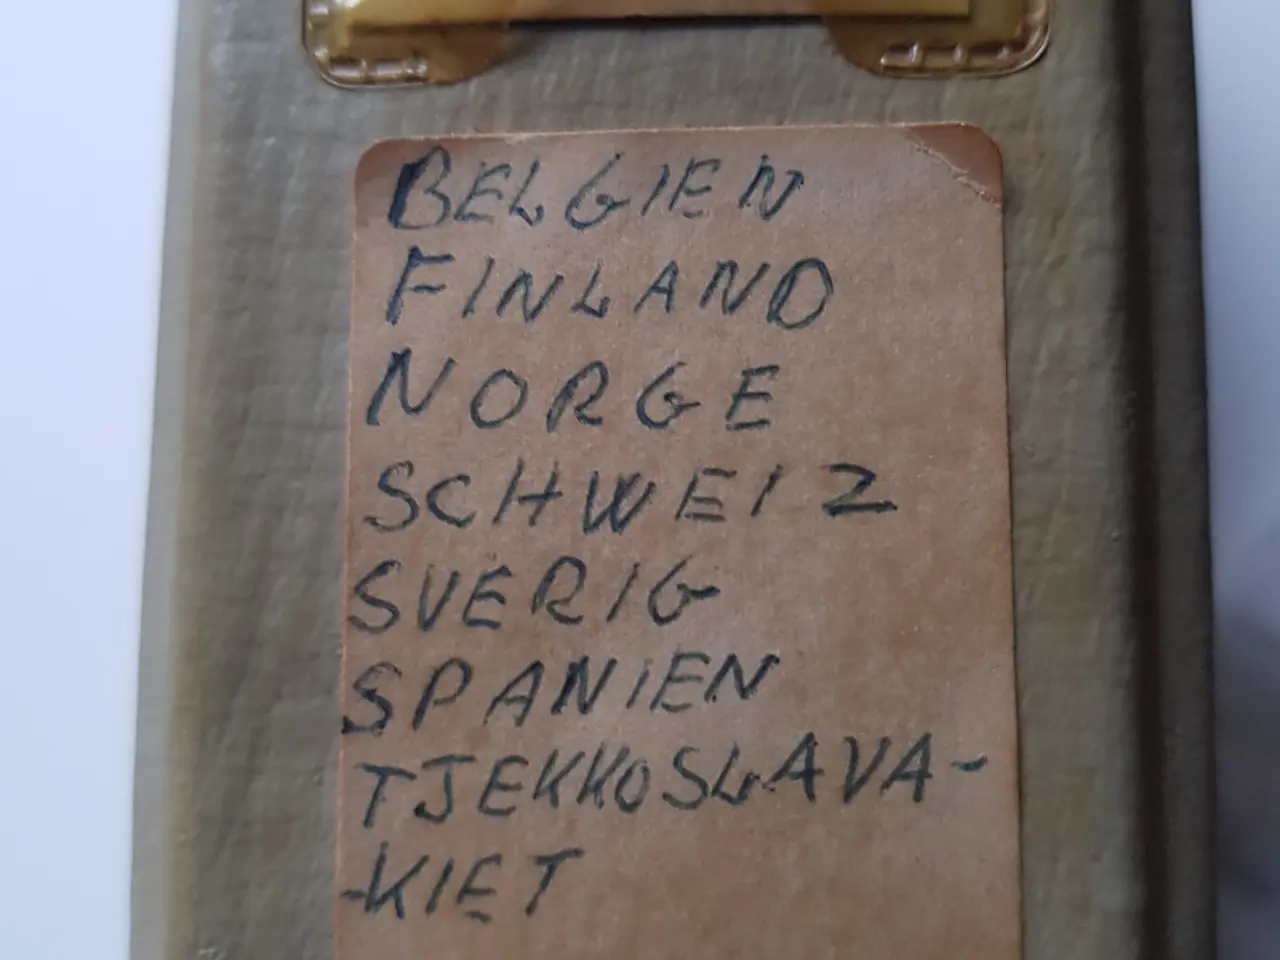 BELGIEN
FINLAND
NORGE
SCHWEIZ
SVERIG
SPANIEN
TJEKKOSLAVA-
-KIET